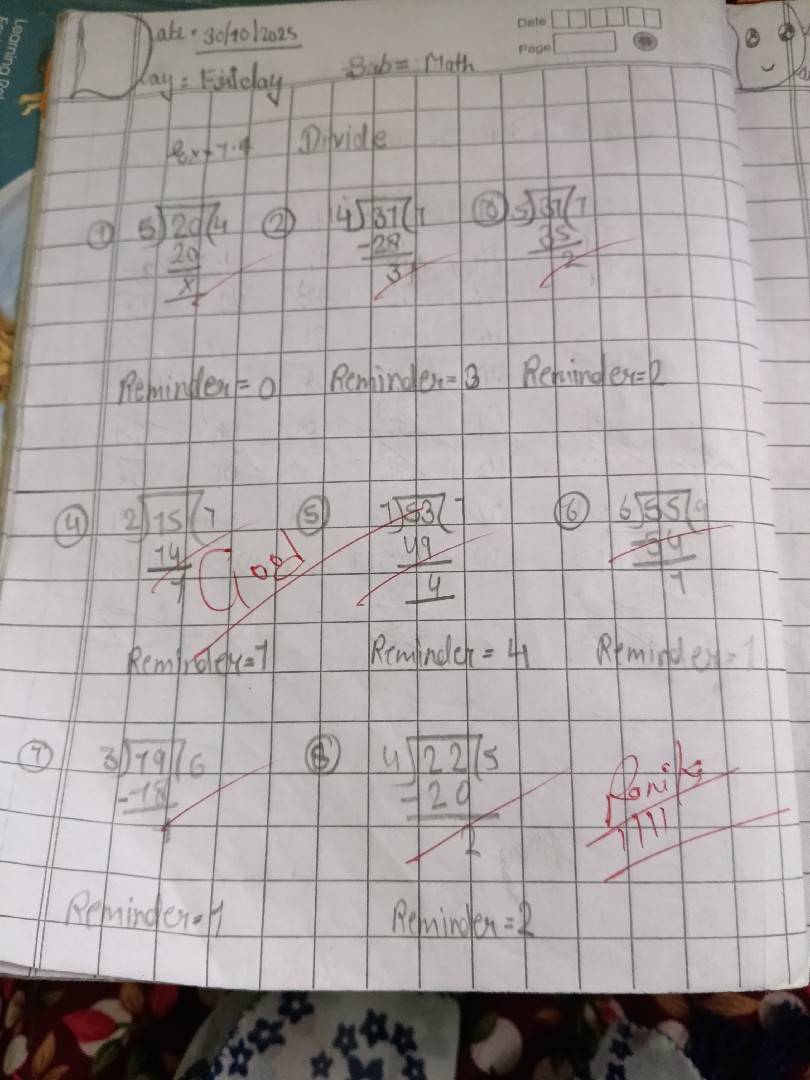 Date
Page
Date = 30/10/2025
Day = Friday
Sub = Math
Ex - 7.4 Divide
① 5)20(4 ② 4)31(7 ③ 5)37(7
20 -28 35
x 3 2
Reminder = 0 Reminder = 3 Reminder = 2
④ 2)15(7 ⑤ 7)53(7 ⑥ 6)55(9
14 49 -54
1 4 1
Good
Reminder = 1 Reminder = 4 Reminder = 1
⑦ 3)19(6 ⑧ 4)22(5
-18 -20
1 2
Reminder = 1 Reminder = 2